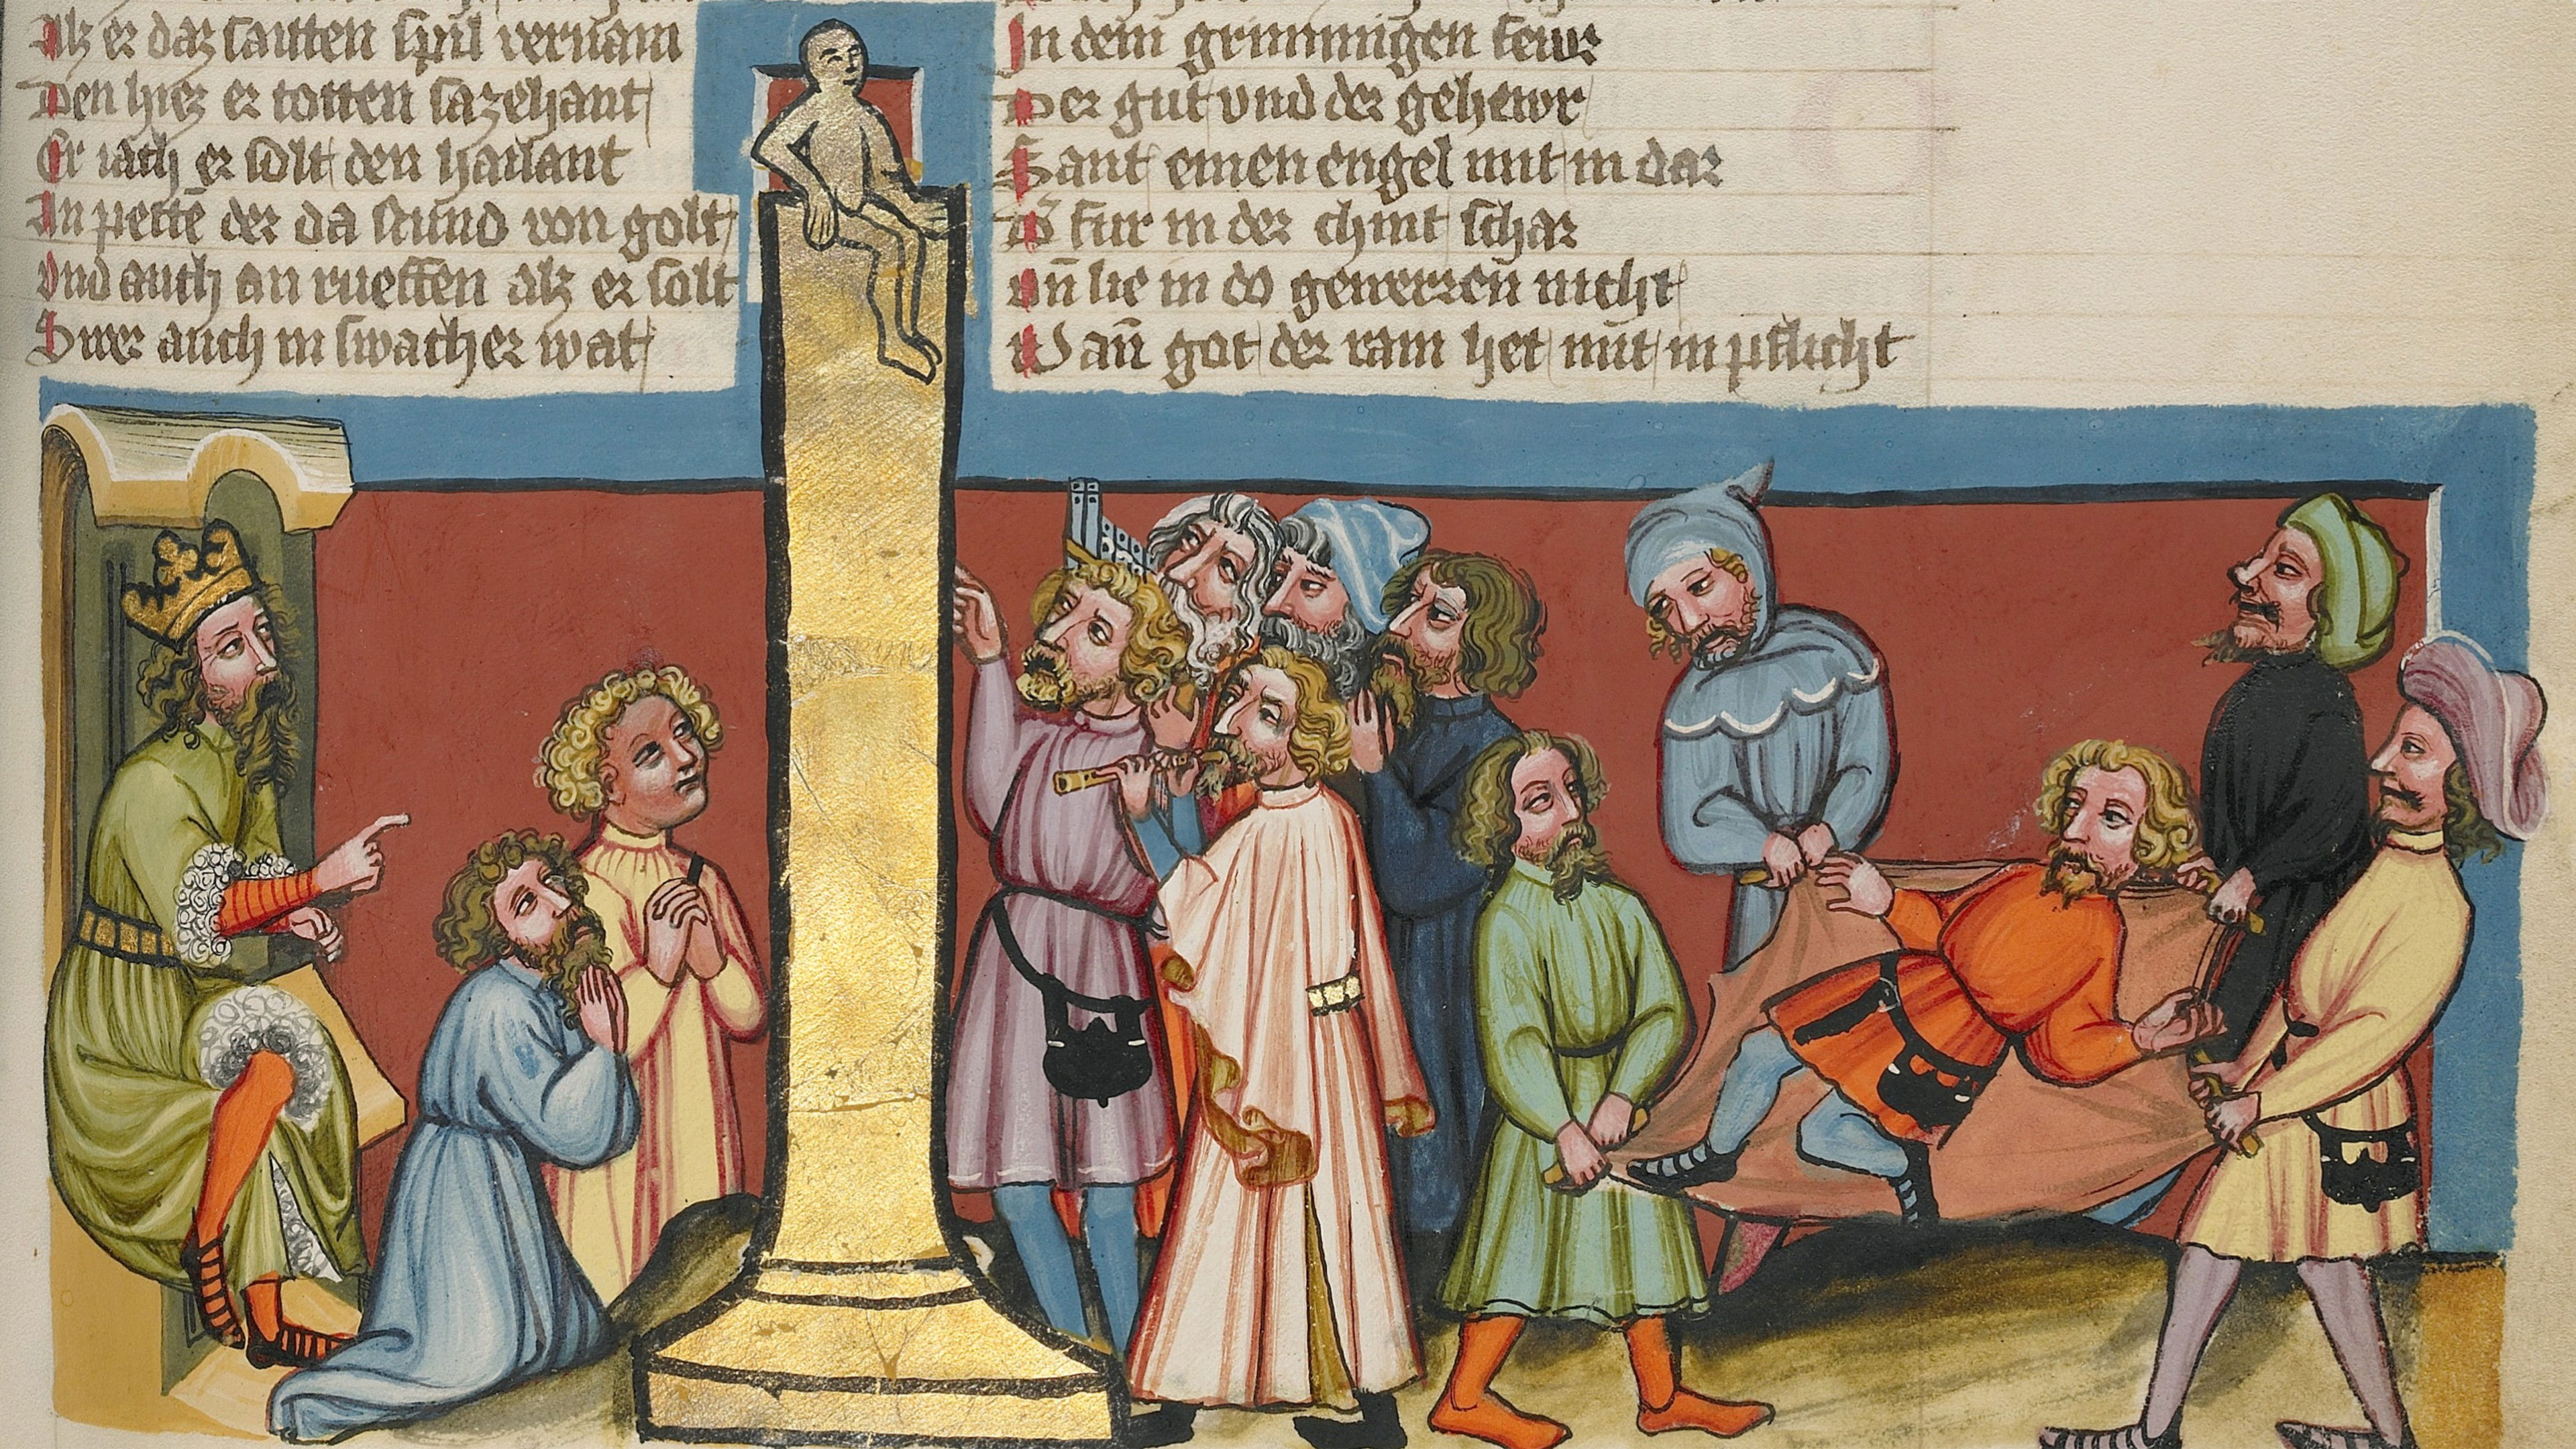 Alz er daz saitten spil vernam
Den hiez er totten sazehant
Er iach er solt den hailant
An pettē der da stund von golt
Vnd auch an rueffen alz er solt
Swer auch in swacher wat
In dem grimmigen fewr
Der gut vnd der gehewr
Sant einen engel mit in dar
Der fur in der chint schar
vn̄ lie in do gewerren nicht
Wan̄ got der ram het mit in pflicht